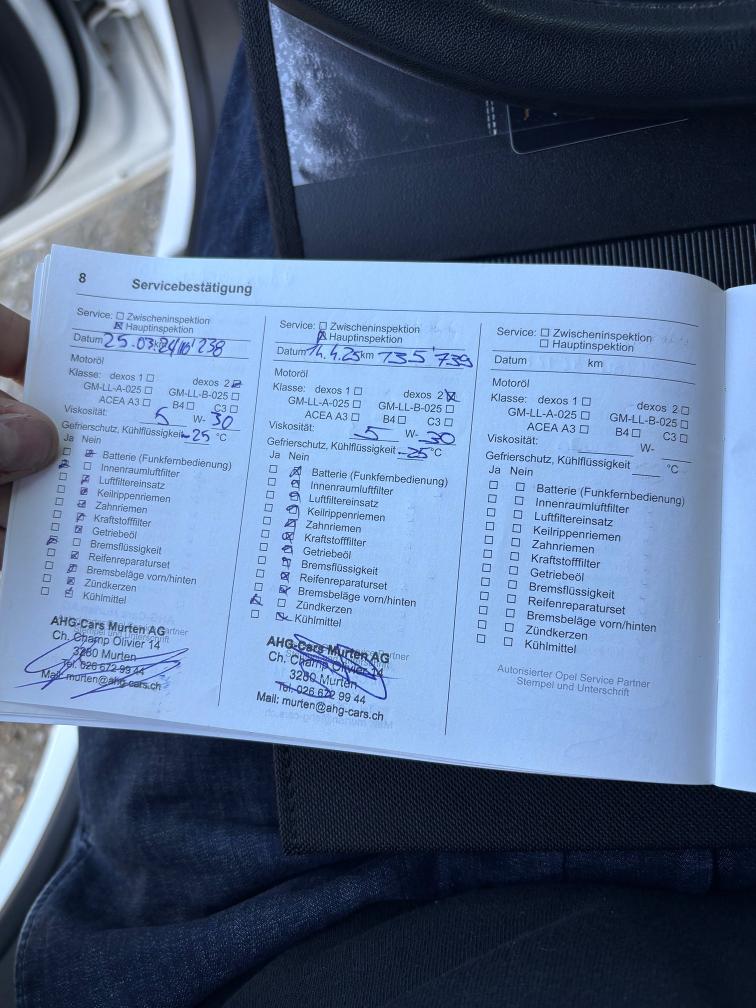 8 Servicebestätigung
Service: ☐ Zwischeninspektion
☒ Hauptinspektion
Datum 25.03.24 km 116'238
Motoröl
Klasse: dexos 1 ☐ dexos 2 ☒
GM-LL-A-025 ☐ GM-LL-B-025 ☐
ACEA A3 ☐ B4 ☐ C3 ☐
Viskosität: 5 W- 30
Gefrierschutz, Kühlflüssigkeit -25 °C
Ja Nein
☐ ☒ Batterie (Funkfernbedienung)
☒ ☐ Innenraumluftfilter
☐ ☒ Luftfiltereinsatz
☐ ☒ Keilrippenriemen
☐ ☒ Zahnriemen
☐ ☒ Kraftstofffilter
☐ ☒ Getriebeöl
☒ ☐ Bremsflüssigkeit
☐ ☒ Reifenreparaturset
☐ ☒ Bremsbeläge vorn/hinten
☐ ☒ Zündkerzen
☐ ☒ Kühlmittel
AHG-Cars Murten AG
Ch. Champ Olivier 14
3280 Murten
Tel. 026 672 99 44
Mail: murten@ahg-cars.ch
Service: ☐ Zwischeninspektion
☒ Hauptinspektion
Datum 14.4.25 km 135'739
Motoröl
Klasse: dexos 1 ☐ dexos 2 ☒
GM-LL-A-025 ☐ GM-LL-B-025 ☐
ACEA A3 ☐ B4 ☐ C3 ☐
Viskosität: 5 W- 30
Gefrierschutz, Kühlflüssigkeit -25 °C
Ja Nein
☐ ☒ Batterie (Funkfernbedienung)
☐ ☒ Innenraumluftfilter
☐ ☒ Luftfiltereinsatz
☐ ☒ Keilrippenriemen
☐ ☒ Zahnriemen
☐ ☒ Kraftstofffilter
☐ ☒ Getriebeöl
☐ ☒ Bremsflüssigkeit
☐ ☒ Reifenreparaturset
☐ ☒ Bremsbeläge vorn/hinten
☒ ☐ Zündkerzen
☐ ☒ Kühlmittel
AHG-Cars Murten AG
Ch. Champ Olivier 14
3280 Murten
Tel. 026 672 99 44
Mail: murten@ahg-cars.ch
Service: ☐ Zwischeninspektion
☐ Hauptinspektion
Datum km
Motoröl
Klasse: dexos 1 ☐ dexos 2 ☐
GM-LL-A-025 ☐ GM-LL-B-025 ☐
ACEA A3 ☐ B4 ☐ C3 ☐
Viskosität: W-
Gefrierschutz, Kühlflüssigkeit °C
Ja Nein
☐ ☐ Batterie (Funkfernbedienung)
☐ ☐ Innenraumluftfilter
☐ ☐ Luftfiltereinsatz
☐ ☐ Keilrippenriemen
☐ ☐ Zahnriemen
☐ ☐ Kraftstofffilter
☐ ☐ Getriebeöl
☐ ☐ Bremsflüssigkeit
☐ ☐ Reifenreparaturset
☐ ☐ Bremsbeläge vorn/hinten
☐ ☐ Zündkerzen
☐ ☐ Kühlmittel
Autorisierter Opel Service Partner
Stempel und Unterschrift